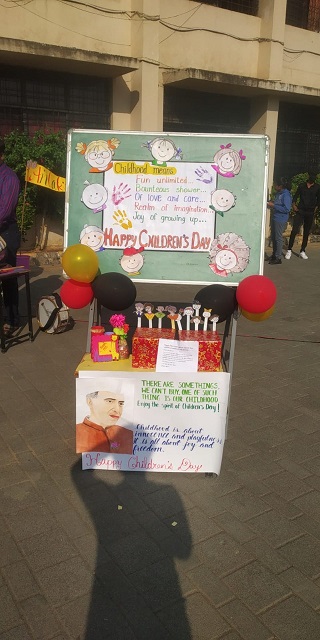 Childhood means
Fun unlimited...
Bounteous shower...
Of love and care...
Realm of Imagination..
Joy of growing up...
HAPPY CHILDREN'S DAY
THERE ARE SOMETHINGS,
WE CAN'T BUY, ONE OF SUCH
THING IS OUR CHILDHOOD
Enjoy the spirit of Children's Day!
Childhood is about
innocence and playfulness
it is all about joy and
freedom.
Happy Children's Day